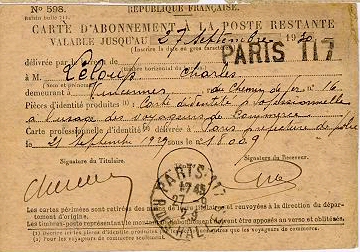 No 598.
RÉPUBLIQUE FRANÇAISE.
CARTE D'ABONNEMENT À LA POSTE RESTANTE
VALABLE JUSQU'AU 27 Septembre 1930
(Inscrire la date en gros caractères)
PARIS 117
délivrée par le
À M. Leloup Charles
demeurant Vincennes du Chemin de fer no 16
Pièces d'identité produites : Carte d'identité professionnelle
à l'usage des voyageurs de Commerce
Carte professionnelle d'identité délivrée à Paris préfecture de police
le 21 Septembre 1929 no 18009
Signature du Titulaire.
Signature du Receveur.
PARIS 117
Les cartes périmées sont retirées des mains de leurs titulaires et renvoyées à la direction du département d'origine.
Les timbres-poste représentant le montant de l'abonnement doivent être apposés au verso et oblitérés.